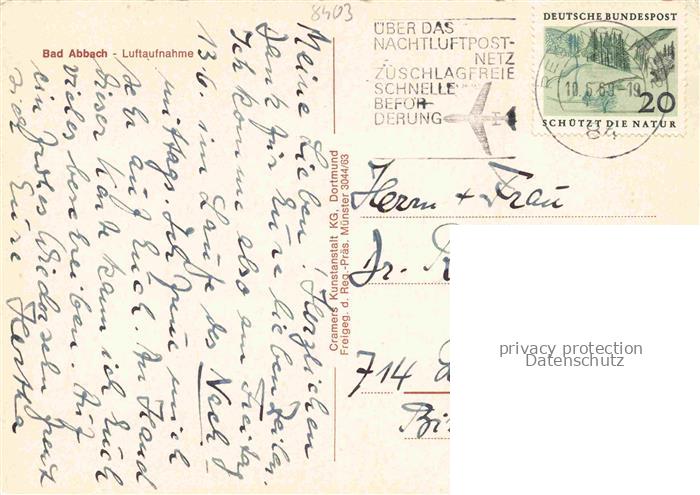 8403
Bad Abbach - Luftaufnahme
ÜBER DAS
NACHTLUFTPOST-
NETZ
ZUSCHLAGFREIE
SCHNELLE
BEFÖR-
DERUNG
DEUTSCHE BUNDESPOST
20
SCHÜTZT DIE NATUR
10.6.69-19
84
Meine Lieben! Herzlichen
Dank für Eure lieben Zeilen.
Ich komme also am Freitag
13.6. im Laufe des Nach-
mittags. Ich freue mich
sehr auf Euch. An Hand
dieser Karte kann ich Euch
vieles beschreiben. Auf
ein frohes Wiedersehn freut
sich Eure Hertha
Cramers Kunstanstalt KG, Dortmund
Freigeg. d. Reg.-Präs. Münster 3044/63
Herrn + Frau
Dr.
714
privacy protection
Datenschutz